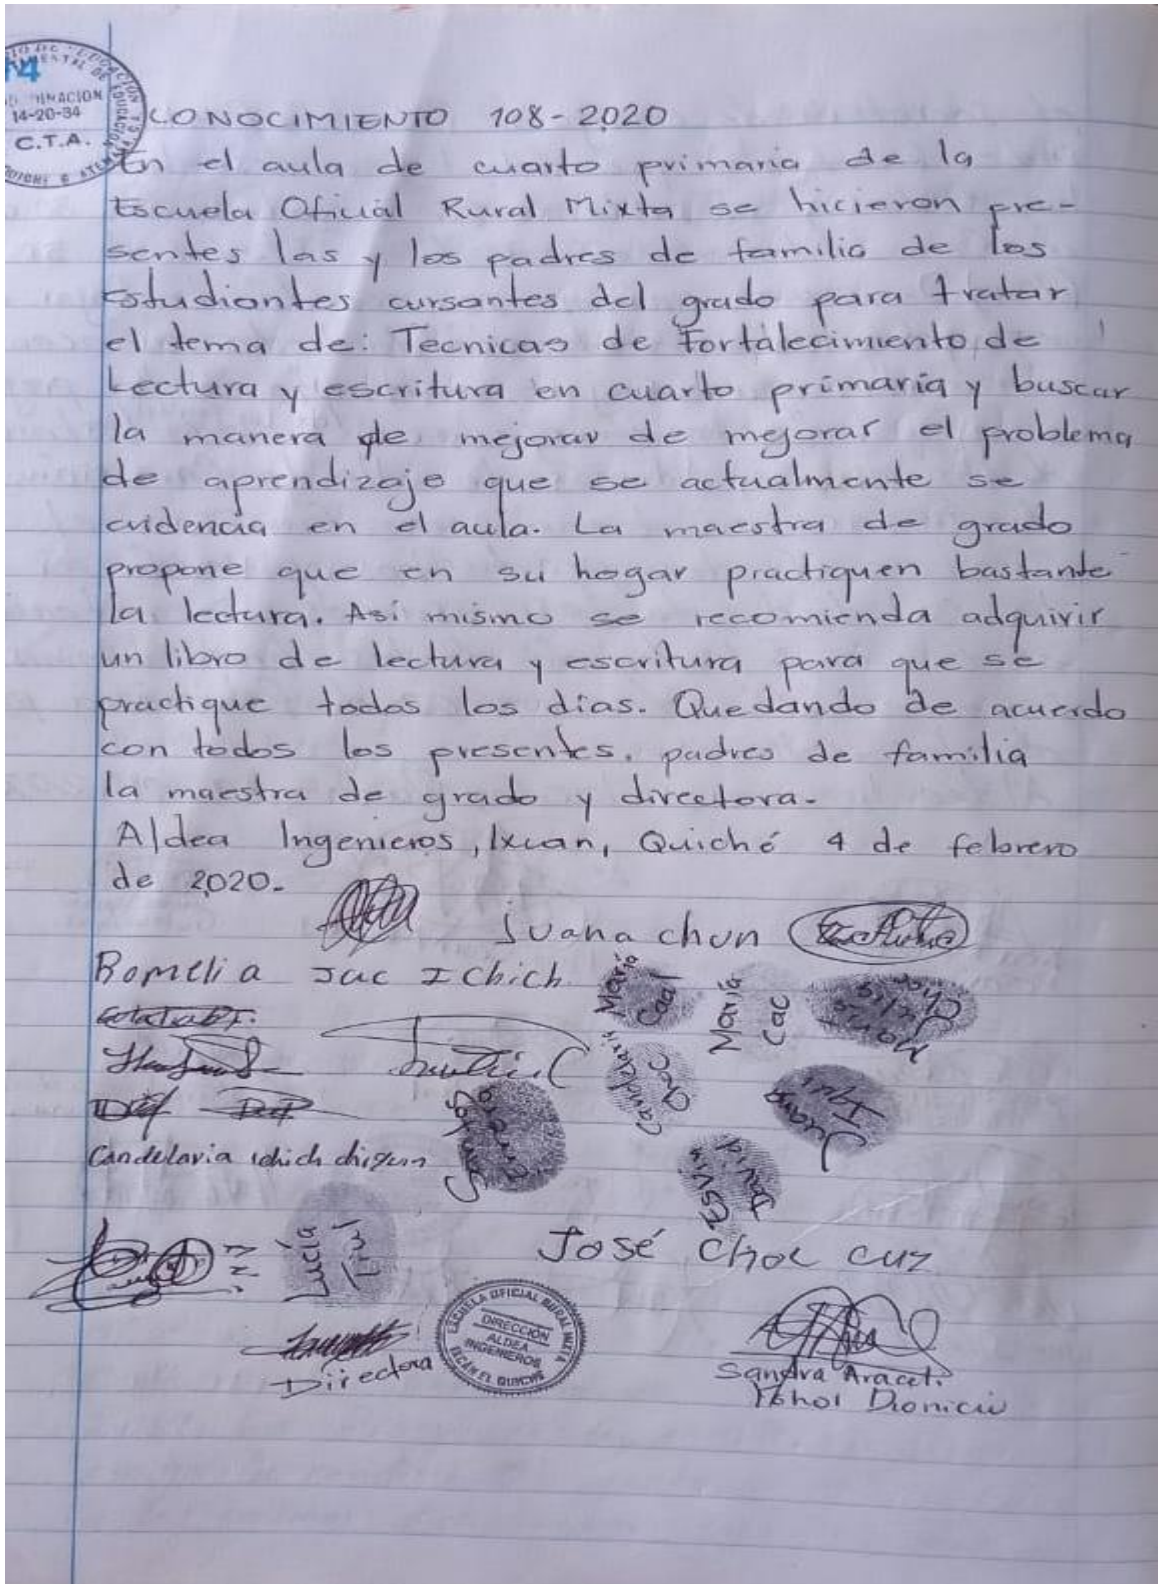 14-20-34
C.T.A.
CONOCIMIENTO 108-2020
En el aula de cuarto primaria de la
Escuela Oficial Rural Mixta se hicieron pre-
sentes las y los padres de familia de los
Estudiantes cursantes del grado para tratar
el tema de: Tecnicas de Fortalecimiento de
Lectura y escritura en cuarto primaria y buscar
la manera de mejorar de mejorar el problema
de aprendizaje que se actualmente se
evidencia en el aula. La maestra de grado
propone que en su hogar practiquen bastante
la lectura. Así mismo se recomienda adquirir
un libro de lectura y escritura para que se
practique todos los días. Quedando de acuerdo
con todos los presentes. padres de familia
la maestra de grado y directora.
Aldea Ingenieros, Ixcan, Quiché 4 de febrero
de 2020.
Juana chun
Romelia Jac Ichich
María Caal
María Cac
María Choc
Candelaria Choc
Juana
Santos
Candelaria ichich
Esvin David
Lucía Tiul
José Choc cuz
ESCUELA OFICIAL RURAL MIXTA
DIRECCIÓN
ALDEA
INGENIEROS
IXCÁN EL QUICHÉ
Directora
Sandra Araceli